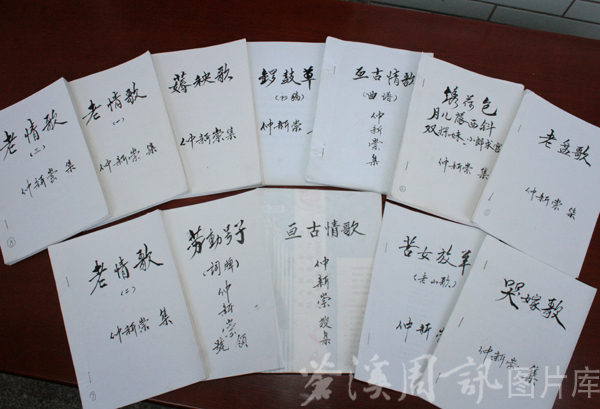 老情歌
(三)
仲新崇 集
老情歌
(一)
仲新崇 集
薅秧歌
仲新崇 集
锣鼓草
(初稿)
仲新崇 集
亘古情歌
(曲谱)
仲新崇集
绣荷包
月儿落西斜
双探妹、小
仲新崇 集
老盘歌
仲新崇 集
老情歌
(二)
仲新崇 集
劳動号子
(词牌)
仲新崇
亘古情歌
仲新崇搜集
苦女放羊
(老山歌)
仲新崇 集
哭嫁歌
仲新崇 集
周訊图片库